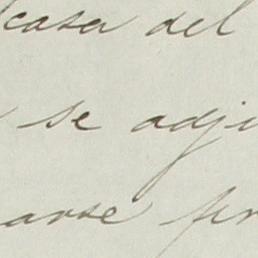 casa del
se adju
arse pr